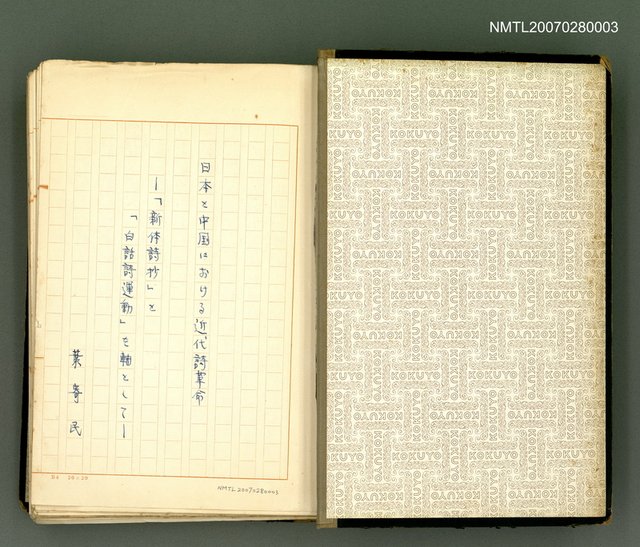 NMTL20070280003
日本と中国における近代詩革命
―「新体詩抄」と
「白話詩運動」を軸として―
葉寄民
B4 20×20
NMTL20070280003
KOKUYO